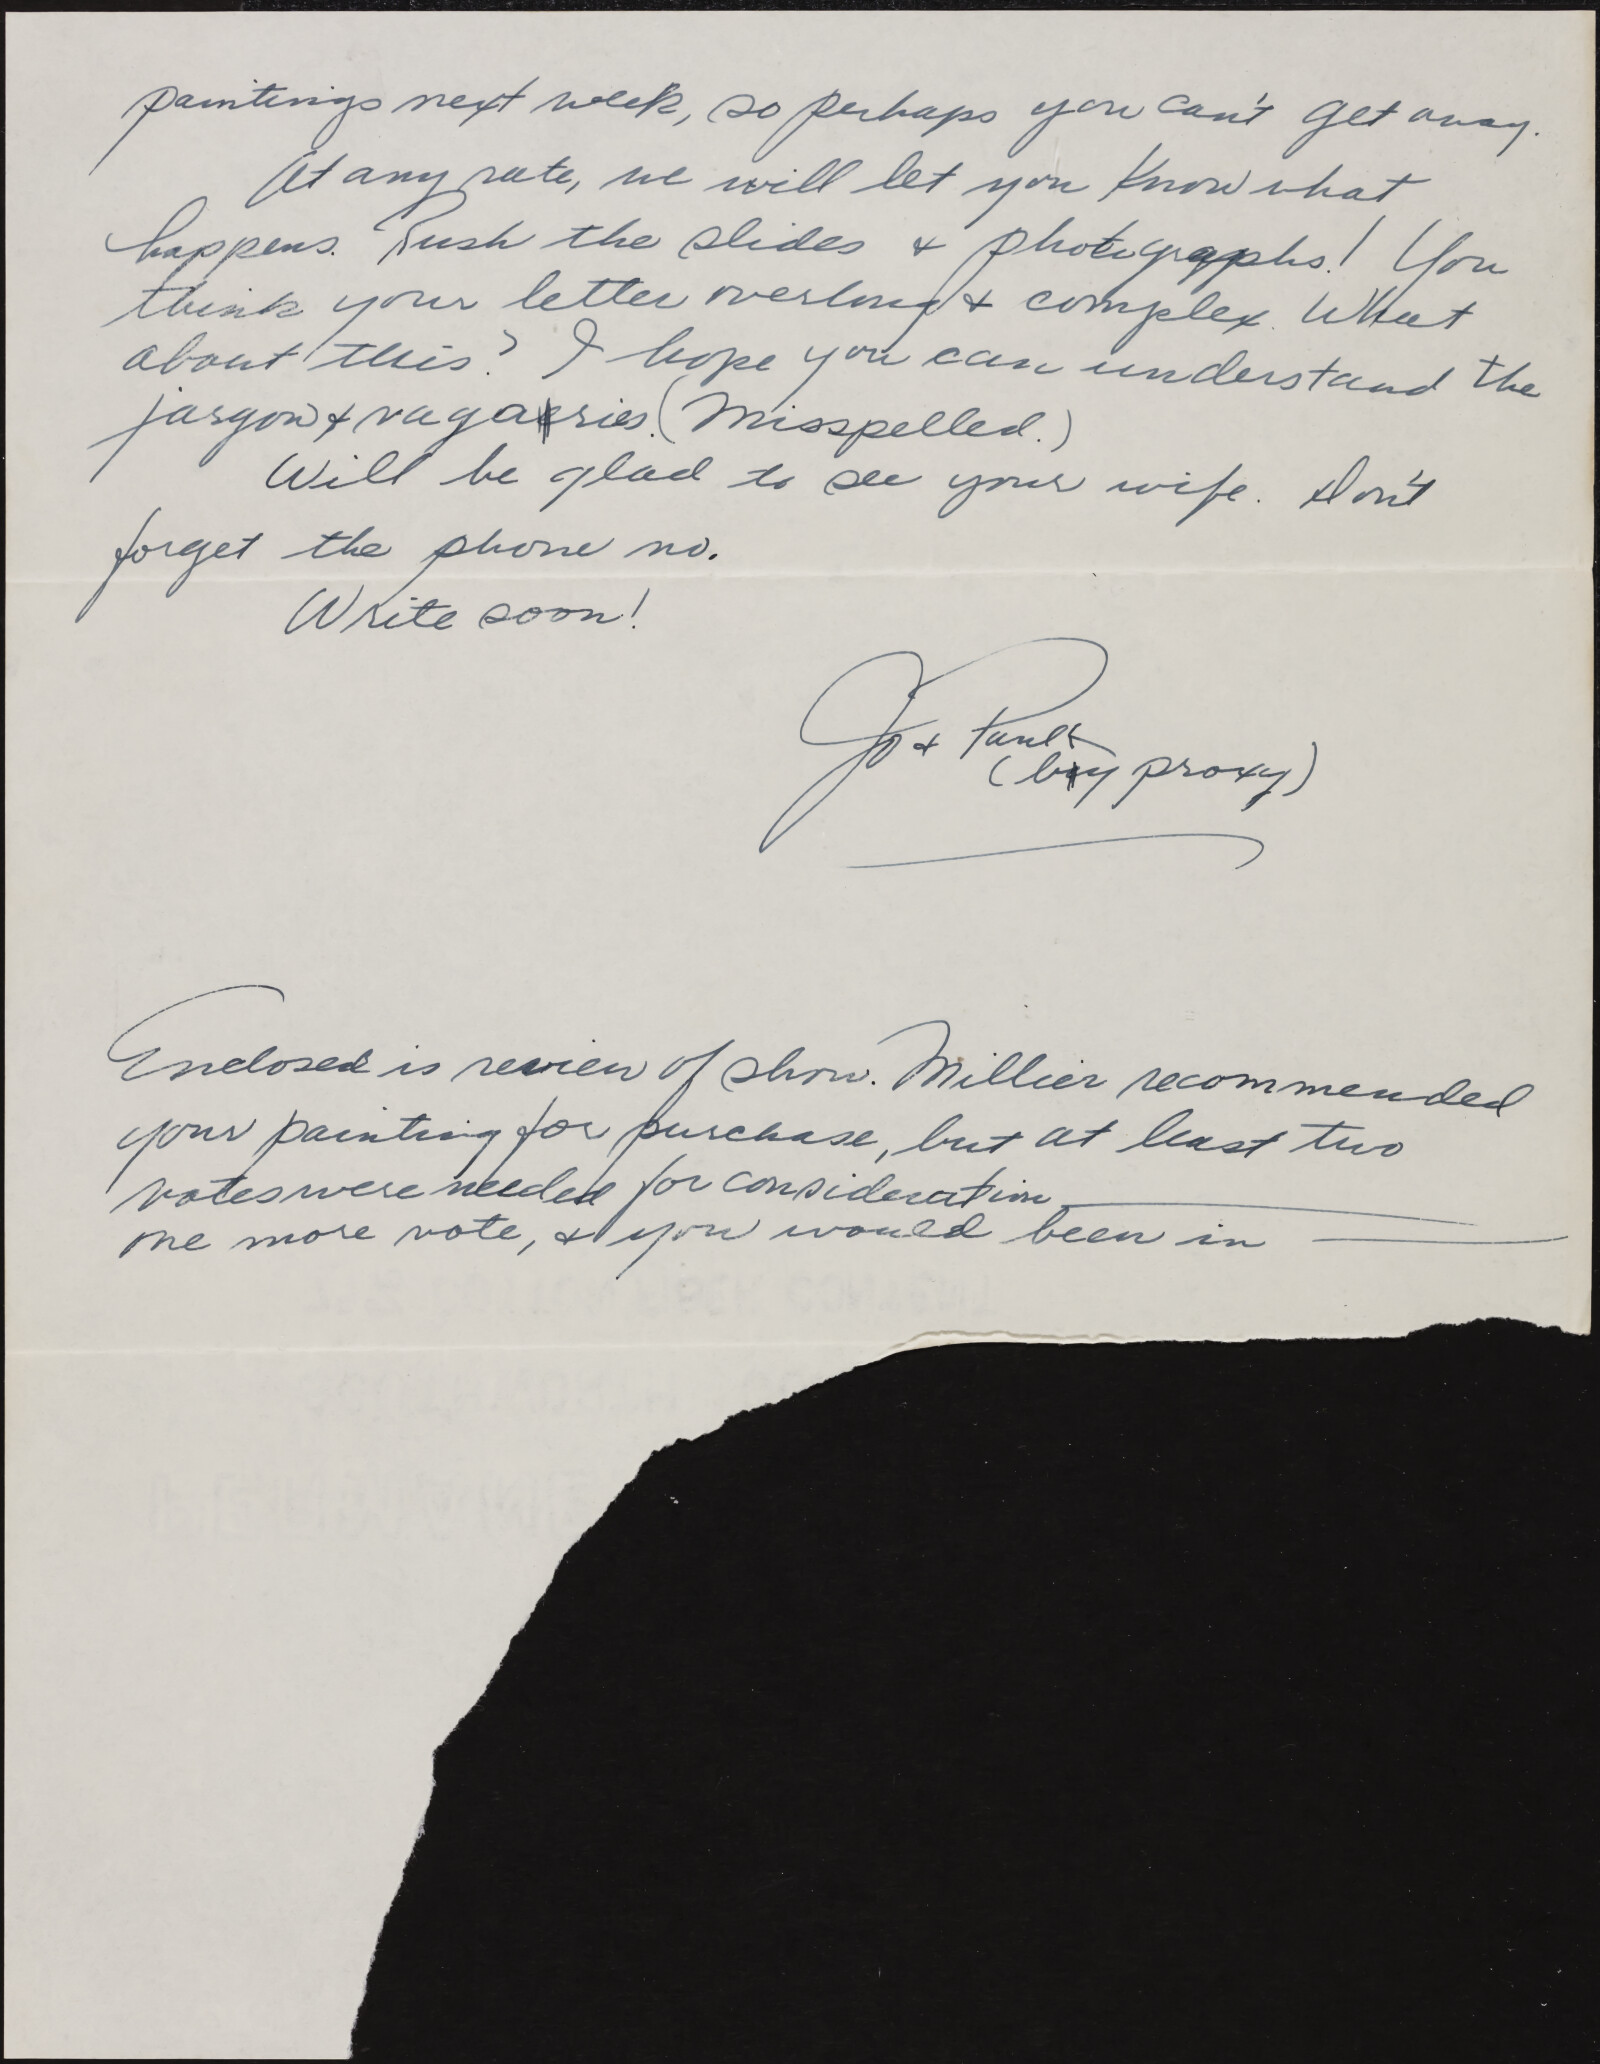 paintings next week, so perhaps you can't get away.
At any rate, we will let you know what
happens. Rush the slides & photographs! You
think your letter overlong & complex. What
about this? I hope you can understand the
jargon & vagaries. (Misspelled.)
Will be glad to see your wife. Don't
forget the phone no.
Write soon!
Jo & Paul
(by proxy)
Enclosed is review of show. Millier recommended
your painting for purchase, but at least two
votes were needed for consideration
one more vote, & you would been in